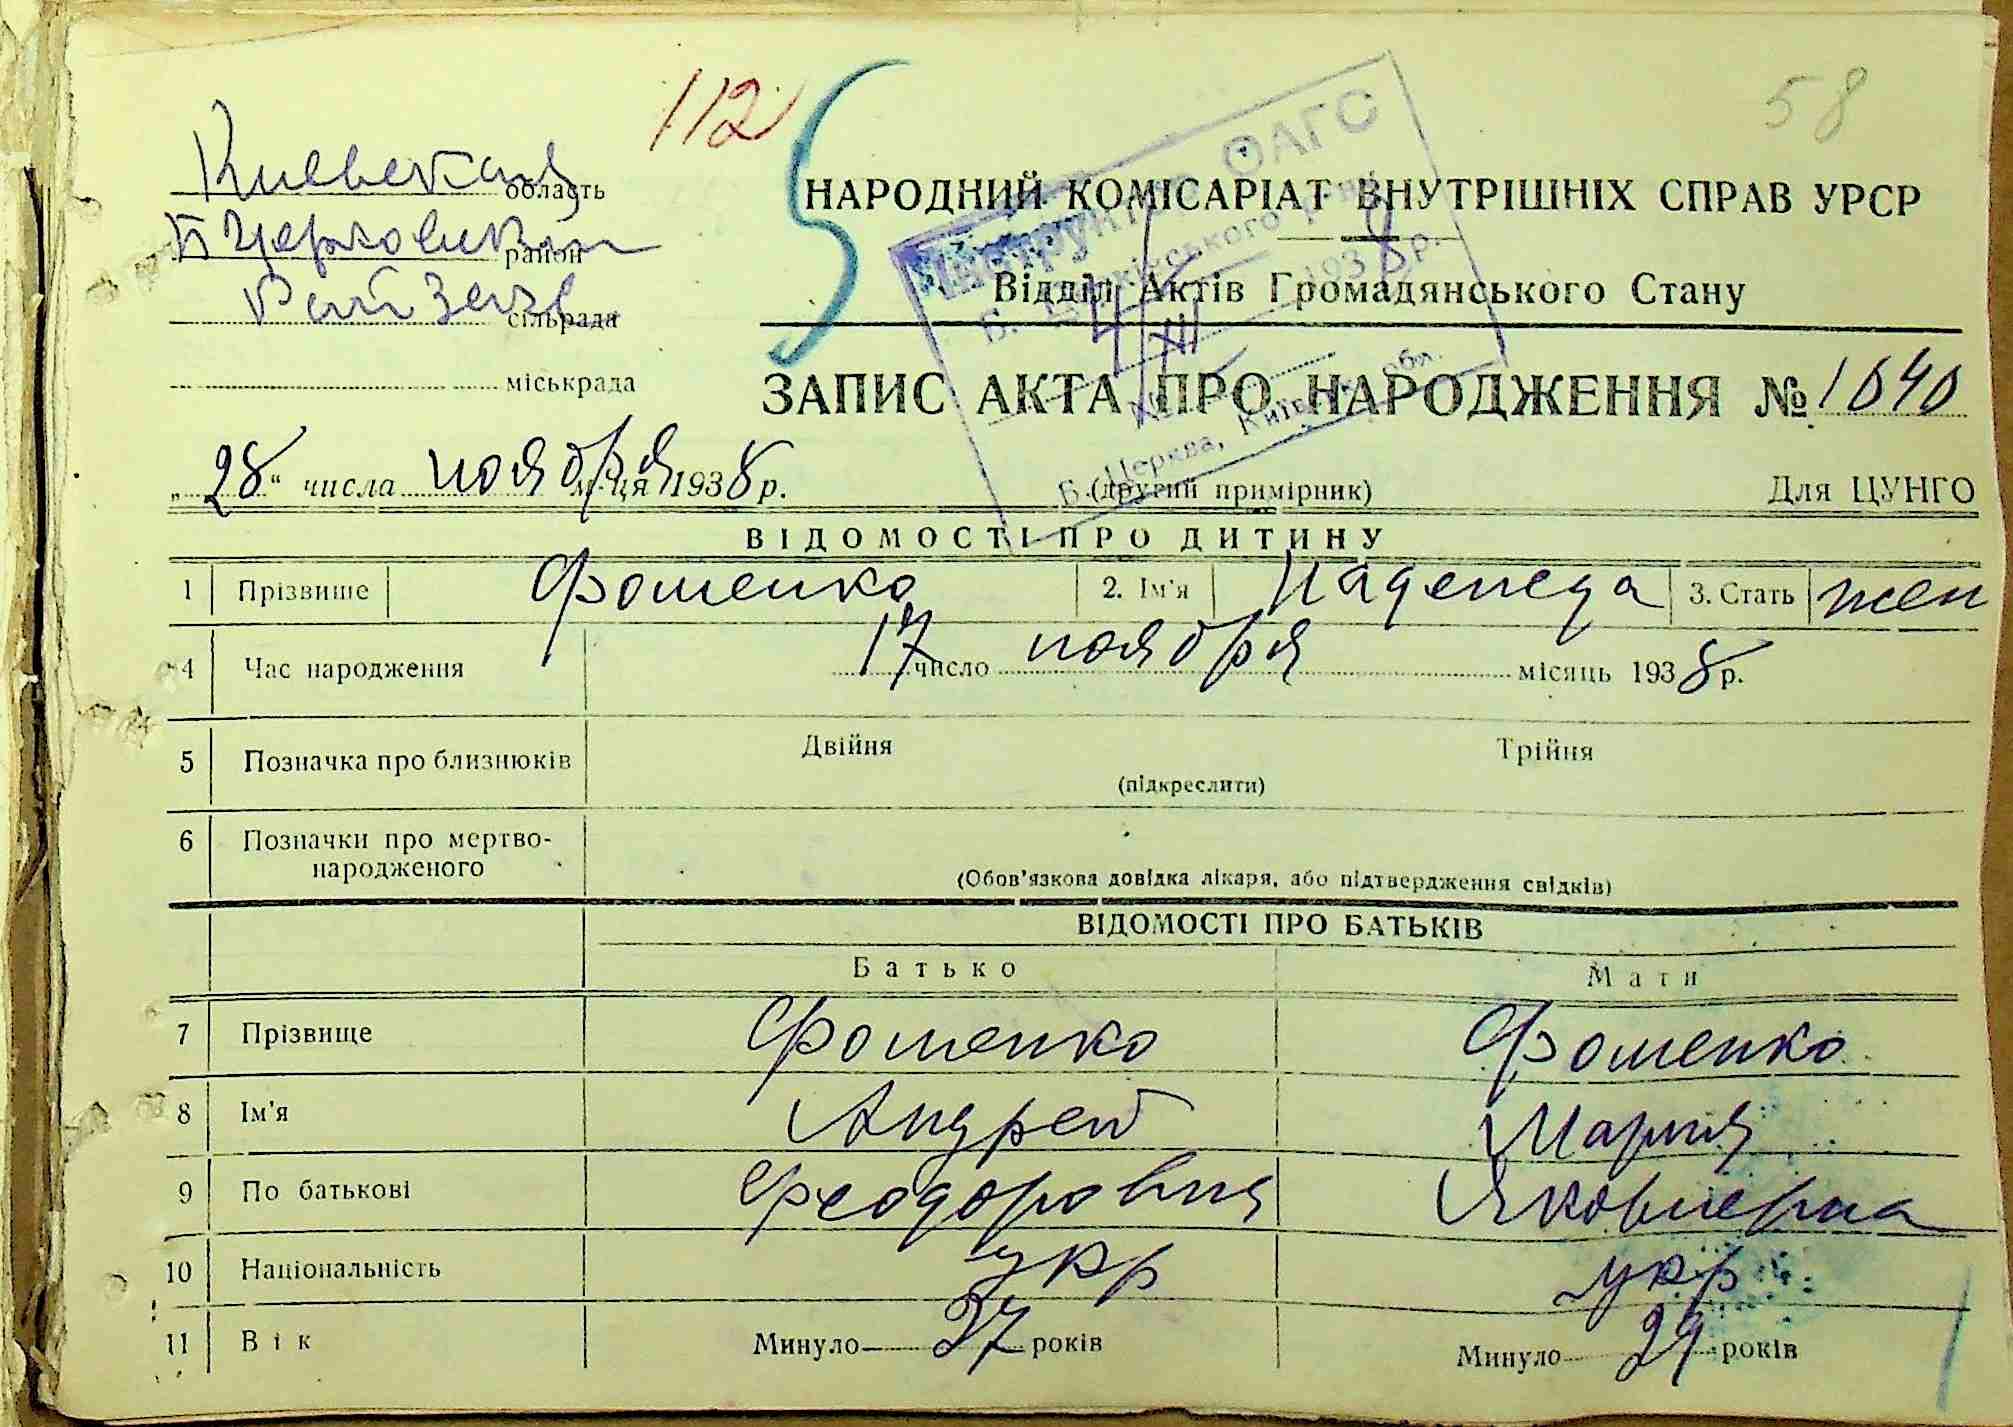 112
58
Киевская область
Б Церковский район
Рай Загс сільрада
міськрада
НАРОДНИЙ КОМІСАРІАТ ВНУТРІШНІХ СПРАВ УРСР
Відділ Актів Громадянського Стану
ЗАПИС АКТА ПРО НАРОДЖЕННЯ № 1040
„28“ числа ноября м-ця 1938 р.
(другий примірник)
Для ЦУНГО
ОАГС
193 р.
4/XII
Б. Церква, Київ. обл.
ВІДОМОСТІ ПРО ДИТИНУ
1 Прізвище Фоменко 2. Ім'я Надежда 3. Стать жен
4 Час народження 17 число ноября місяць 1938 р.
5 Позначка про близнюків Двійня Трійня
(підкреслити)
6 Позначки про мертво-
народженого
(Обов'язкова довідка лікаря, або підтвердження свідків)
ВІДОМОСТІ ПРО БАТЬКІВ
Батько Мати
7 Прізвище Фоменко Фоменко
8 Ім'я Андрей Мария
9 По батькові Феодорович Яковлевна
10 Національність укр укр
11 Вік Минуло 37 років Минуло 29 років